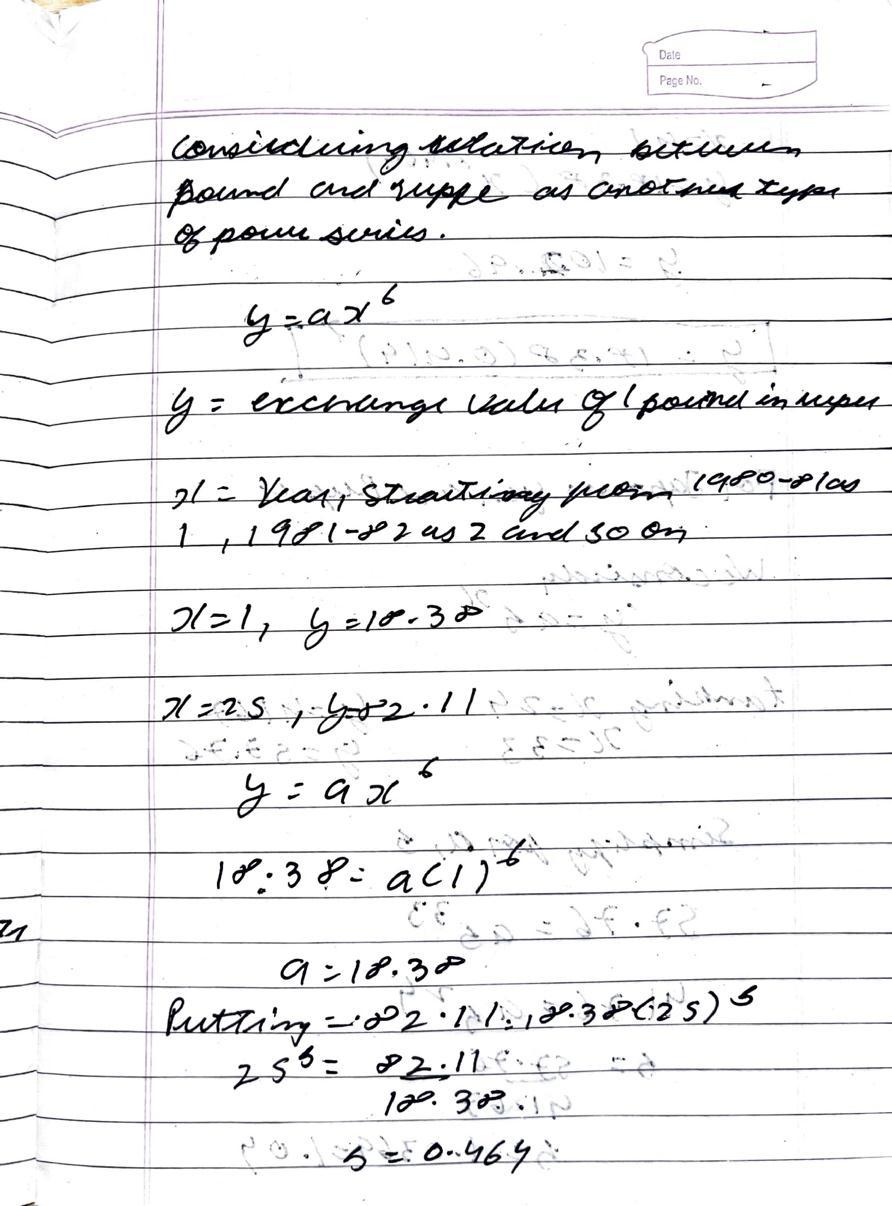 Date
Page No.
Considering relation between
pound and ruppe as another type
of power series.
y = ax^b
y = exchange value of 1 pound in rupee
x = Year, starting from 1980-81 as
1, 1981-82 as 2 and so on
x=1, y=18.38
x=25, y=82.11
y = ax^b
18.38 = a(1)^b
a = 18.38
Putting = 82.11 = 18.38(25)^b
25^b = 82.11
18.38.
b = 0.464